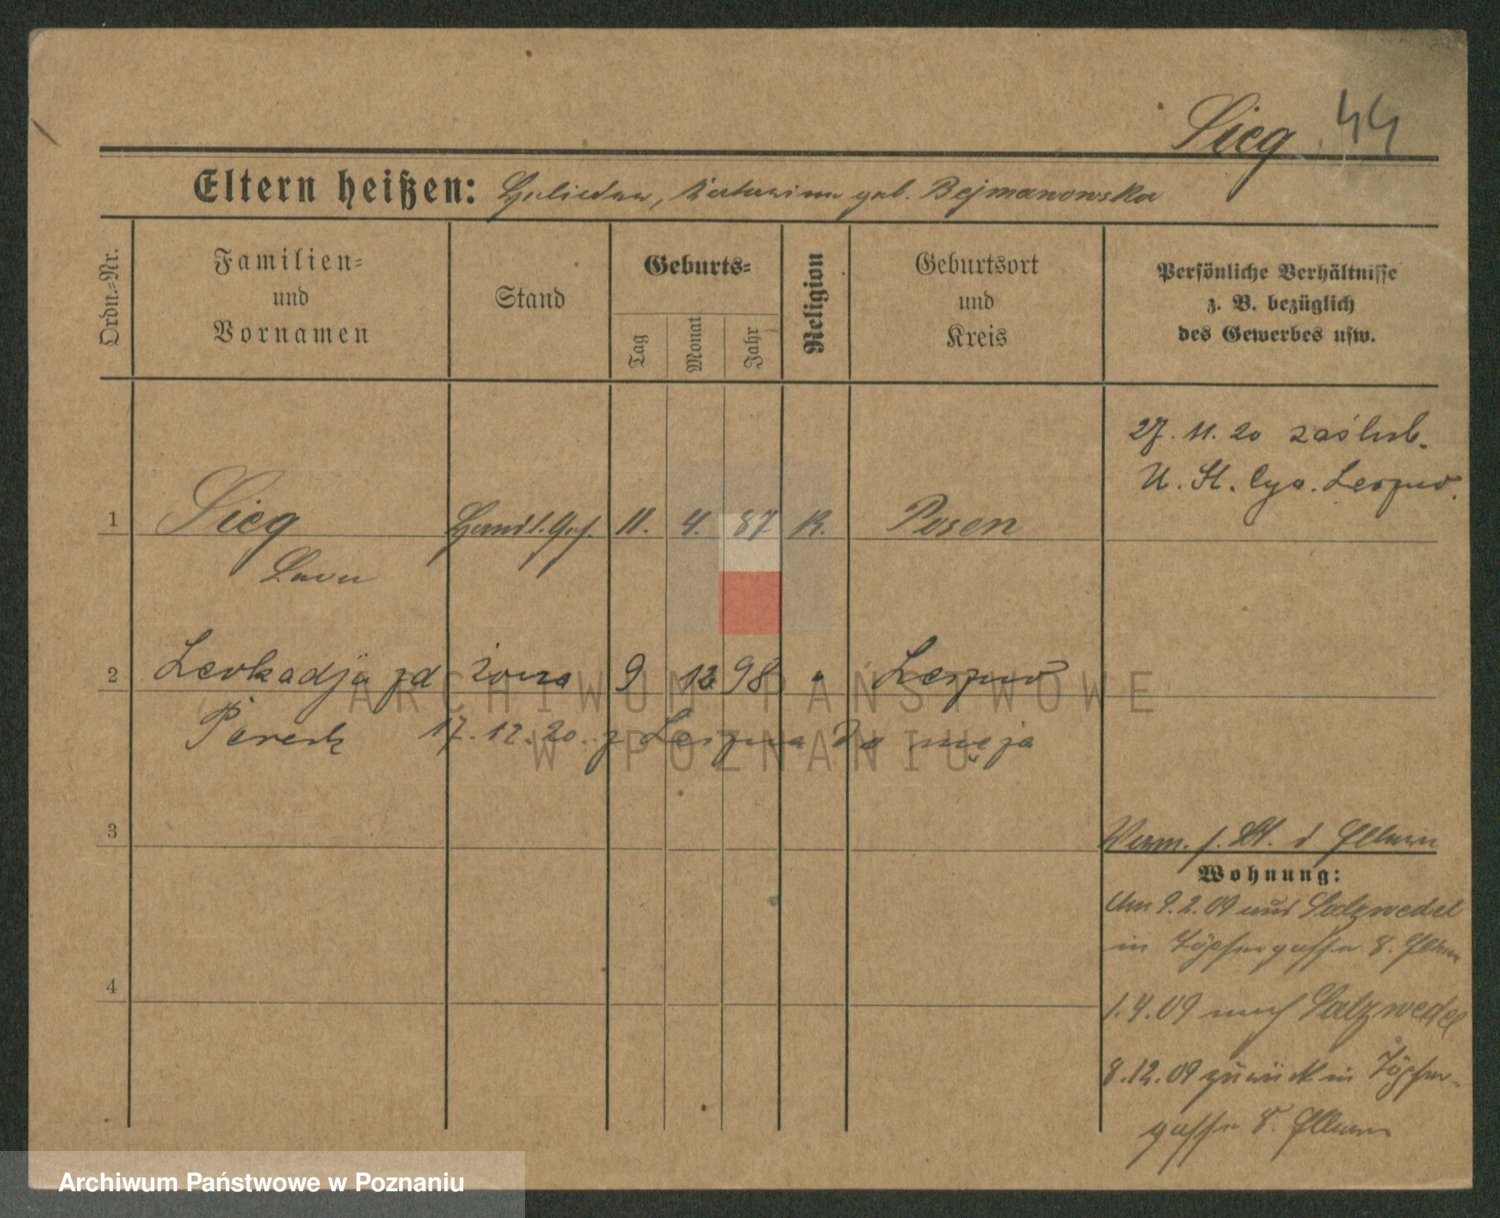 Sieg 44
Eltern heißen: geb. Bejmanowska
Ordn.-Nr.
Familien-
und
Vornamen
Stand
Geburts-
Tag
Monat
Jahr
Religion
Geburtsort
und
Kreis
Persönliche Verhältnisse
z. B. bezüglich
des Gewerbes usw.
27. 11. 20 zaślub.
U. St. Cyw. Leszno.
1 Sieg Handl. Geh. 11. 4. 87 K. Posen
Leon
2 Leokadja zd żona 9 12 98 " Leszno
17.12.20. z Leszna do męża
3
4
Verm. s. Kt. d Eltern
Wohnung:
Am 9.2.09 aus Salzwedel
in Töpfergasse 8. Eltern
1.4.09 nach Salzwedel
8.12.09 zurück in Töpfer-
gasse 8. Eltern
ARCHIWUM PAŃSTWOWE
W POZNANIU
Archiwum Państwowe w Poznaniu